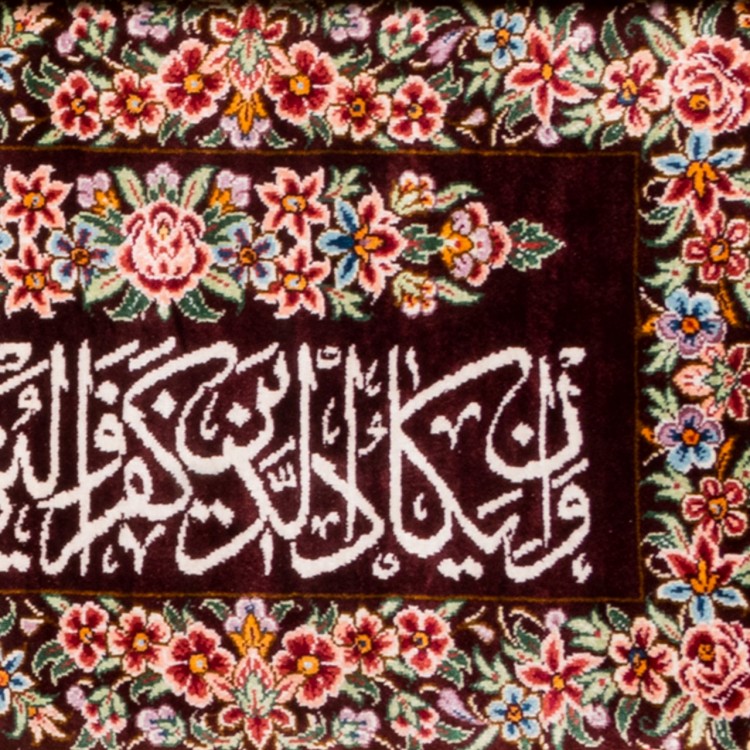 وَإِن يَكَادُ الَّذِينَ كَفَرُوا